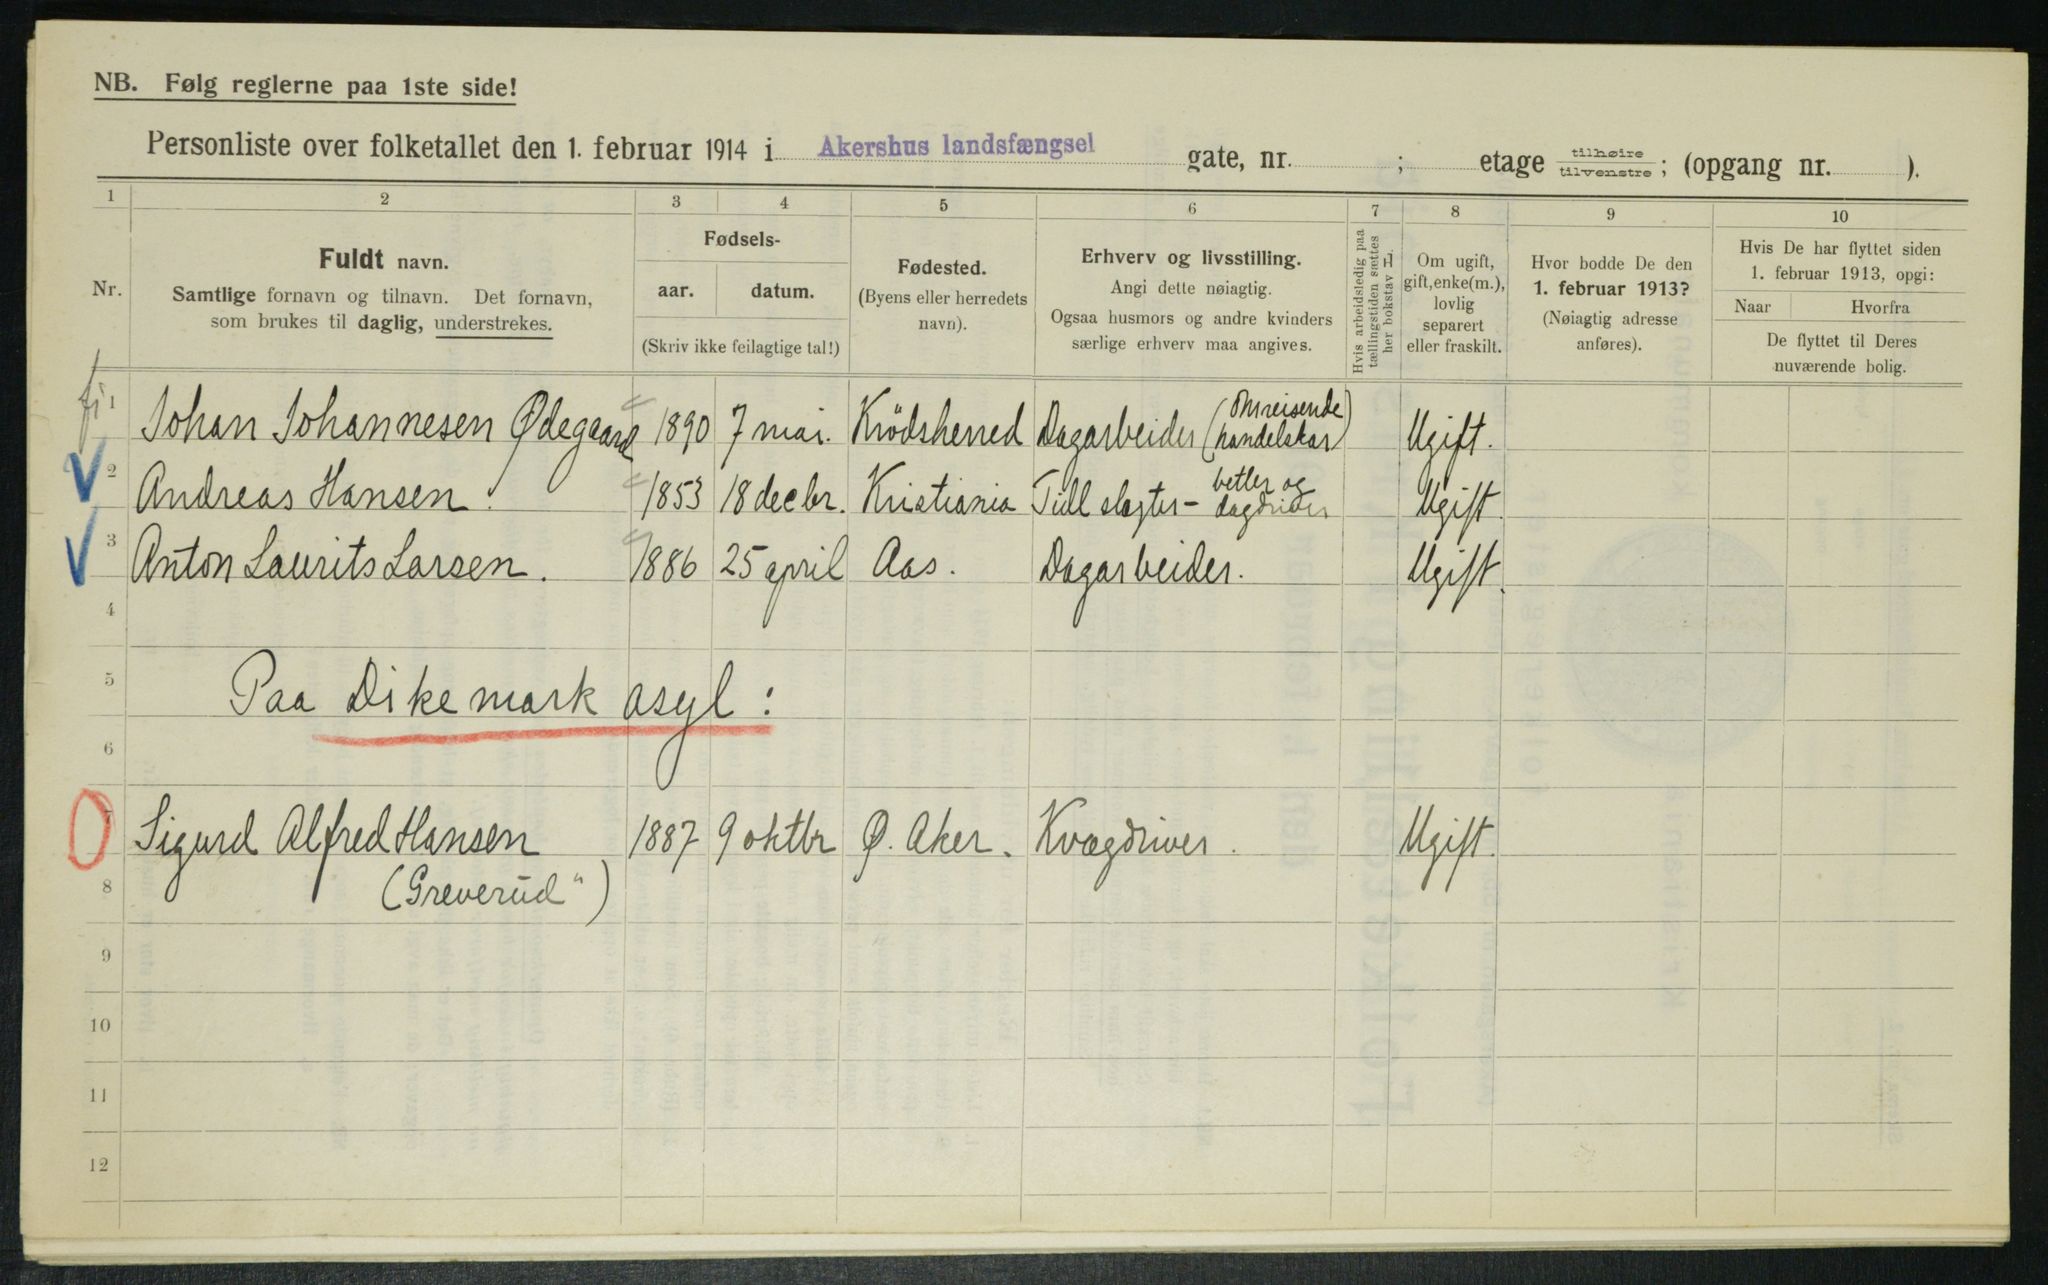 NB. Følg reglerne paa 1ste side!
Personliste over folketallet den 1. februar 1914 i Akershus landsfængsel gate, nr. ; etage tilhøire tilvenstre; (opgang nr. ).
1 2 3 4 5 6 7 8 9 10
Nr.
Fuldt navn.
Samtlige fornavn og tilnavn. Det fornavn,
som brukes til daglig, understrekes.
Fødsels-
aar. datum.
(Skriv ikke feilagtige tal!)
Fødested.
(Byens eller herredets
navn).
Erhverv og livsstilling.
Angi dette nøiagtig.
Ogsaa husmors og andre kvinders
særlige erhverv maa angives.
Hvis arbeidsledig paa
tællingstiden sættes
her bokstav L.
Om ugift,
gift, enke(m.),
lovlig
separert
eller fraskilt.
Hvor bodde De den
1. februar 1913?
(Nøiagtig adresse
anføres).
Hvis De har flyttet siden
1. februar 1913, opgi:
Naar Hvorfra
De flyttet til Deres
nuværende bolig.
1 Johan Johannesen Ødegaard 1890 7 mai. Krödsherred Dagarbeider (Omreisende handelskar) Ugift.
2 Andreas Hansen. 1853 18 decbr. Kristiania Tidl slagter - betler og dagdriver Ugift
3 Anton Laurits Larsen. 1886 25 april Aas. Dagarbeider. Ugift.
4
5 Paa Dikemark asyl:
6
7 Sigurd Alfred Hansen 1887 9 oktbr Ø. Aker. Kvægdriver. Ugift.
8 (Greverud")
9
10
11
12